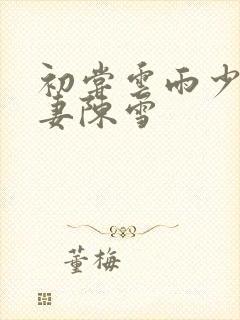 初尝雲雨少
妻陳雪
董梅